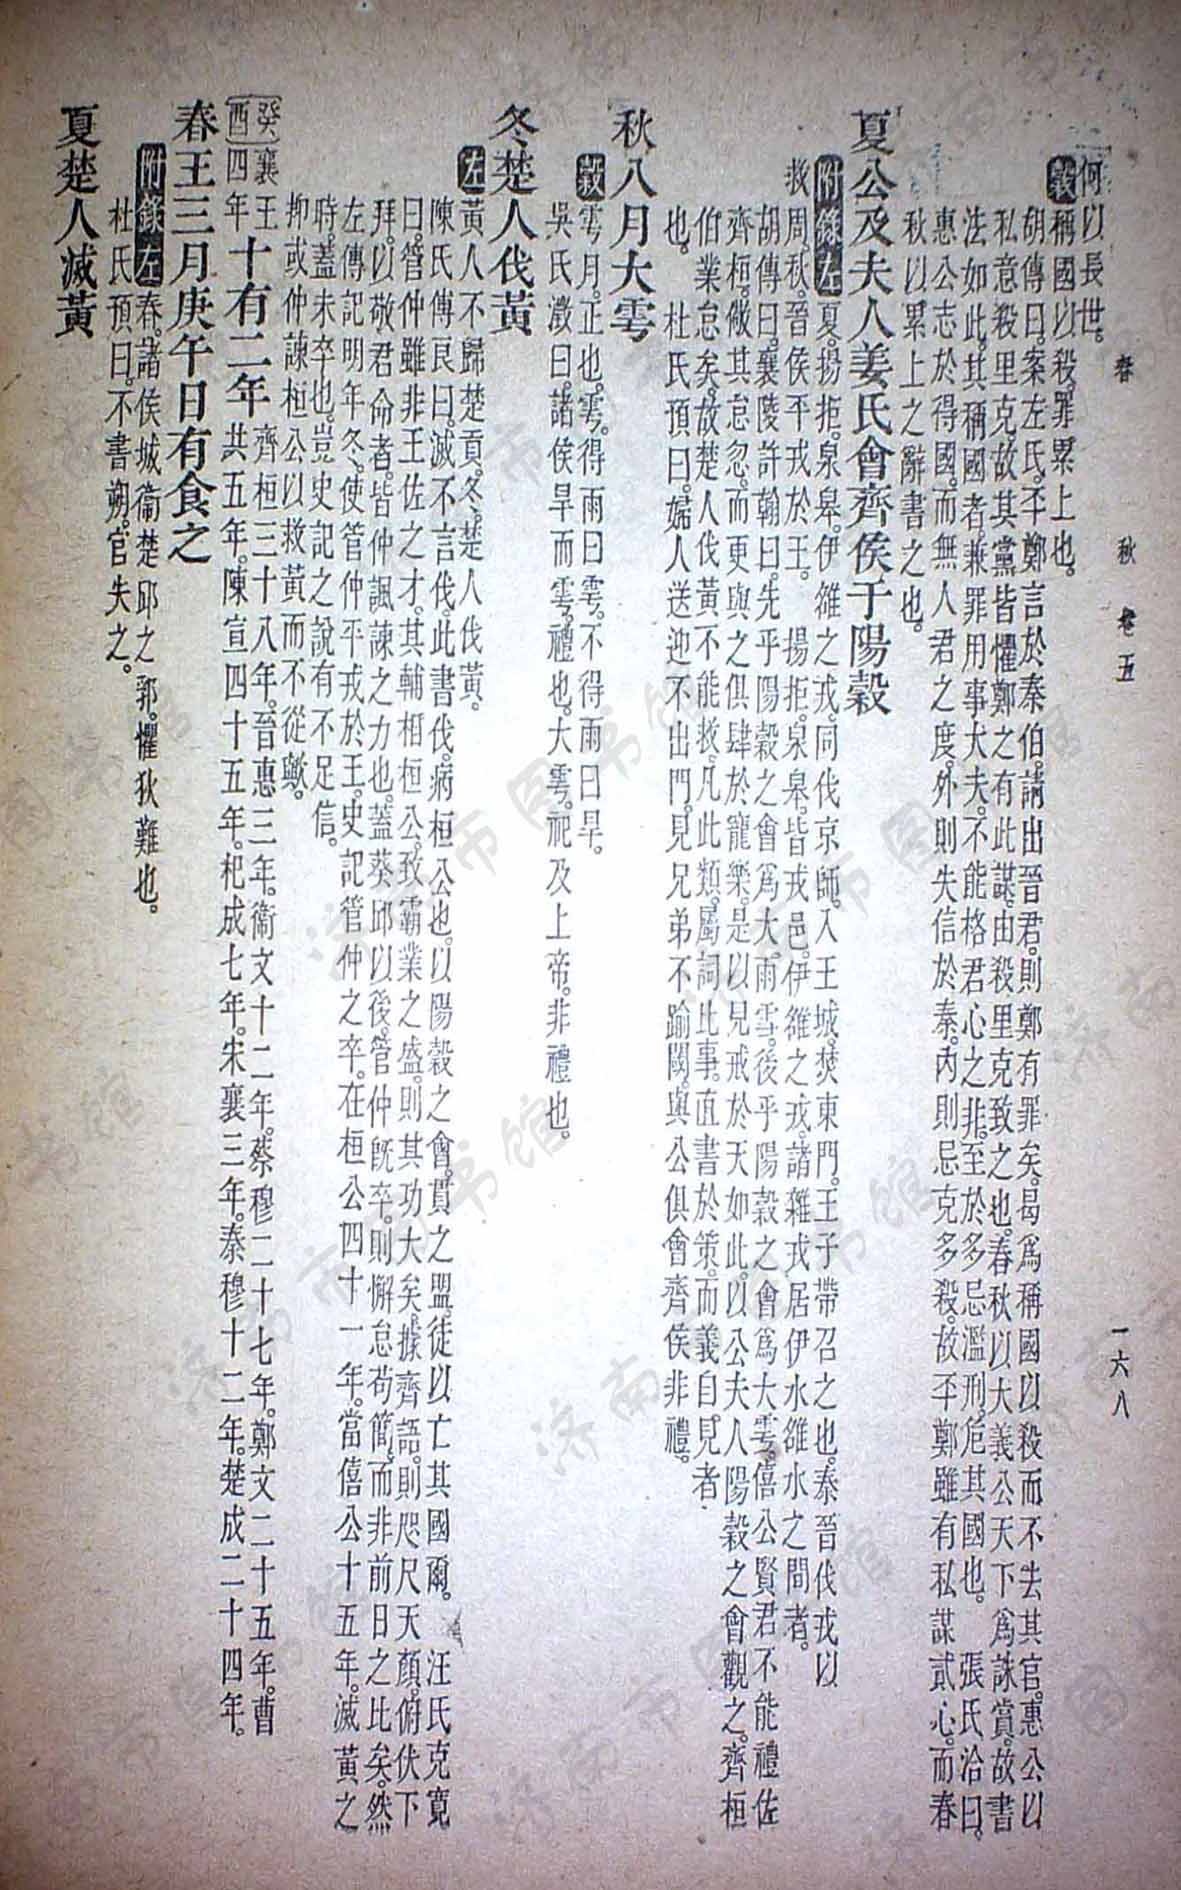 春 秋 卷五 一六八
何以長世。
穀稱國以殺。罪累上也。
胡傳曰。案左氏。丕鄭言於秦伯。請出晉君。則鄭有罪矣。曷爲稱國以殺而不去其官。惠公以
私意殺里克。故其黨皆懼。鄭之有此謀。由殺里克致之也。春秋以大義公天下爲誅賞。故書
法如此。其稱國者。兼罪用事大夫。不能格君心之非。至於多忌濫刑。危其國也。 張氏洽曰。
惠公志於得國。而無人君之度。外則失信於秦。內則忌克多殺。故丕鄭雖有私謀貳心。而春
秋以累上之辭書之也。
夏公及夫人姜氏會齊侯于陽穀
附錄左夏。揚拒。泉皋。伊雒之戎。同伐京師。入王城。焚東門。王子帶召之也。秦晉伐戎以
救周。秋。晉侯平戎於王。 揚拒。泉皋。皆戎邑。伊雒之戎。諸雜戎居伊水雒水之間者。
胡傳曰。襄陵許翰曰。先乎陽穀之會爲大雨雪。後乎陽穀之會爲大雩。僖公賢君不能禮佐
齊桓。儆其怠忽。而更與之俱肆於寵樂。是以見戒於天如此。以公夫人陽穀之會觀之。齊桓
伯業怠矣。故楚人伐黃。不能救。凡此類屬詞比事。直書於策。而義自見者
也。 杜氏預曰。婦人送迎不出門。見兄弟不踰閾。與公俱會齊侯非禮。
秋八月大雩
穀雩月。正也。雩。得雨曰雩。不得雨曰旱。
吳氏澂曰。諸侯旱而雩。禮也。大雩。祀及上帝。非禮也。
冬楚人伐黃
左黃人不歸楚貢。冬。楚人伐黃。
陳氏傅良曰。滅不言伐。此書伐。病桓公也。以陽穀之會。貫之盟。徒以亡其國爾。 汪氏克寬
曰。管仲雖非王佐之才。其輔相桓公。致霸業之盛。則其功大矣。據齊語。則咫尺天顏。俯伏下
拜。以敬君命者。皆仲諷諫之力也。蓋葵邱以後。管仲旣卒。則懈怠苟簡。而非前日之比矣。然
左傳記明年冬。使管仲平戎於王。史記管仲之卒。在桓公四十一年。當僖公十五年。滅黃之
時。蓋未卒也。豈史記之說有不足信。
抑或仲諫桓公以救黃而不從歟。
癸酉 襄王四年 十有二年 齊桓三十八年。晉惠三年。衞文十二年。蔡穆二十七年。鄭文二十五年。曹
共五年。陳宣四十五年。杞成七年。宋襄三年。秦穆十二年。楚成二十四年。
春王三月庚午日有食之
附錄左春。諸侯城衞楚邱之郛。懼狄難也。
杜氏預曰。不書朔。官失之。
夏楚人滅黃